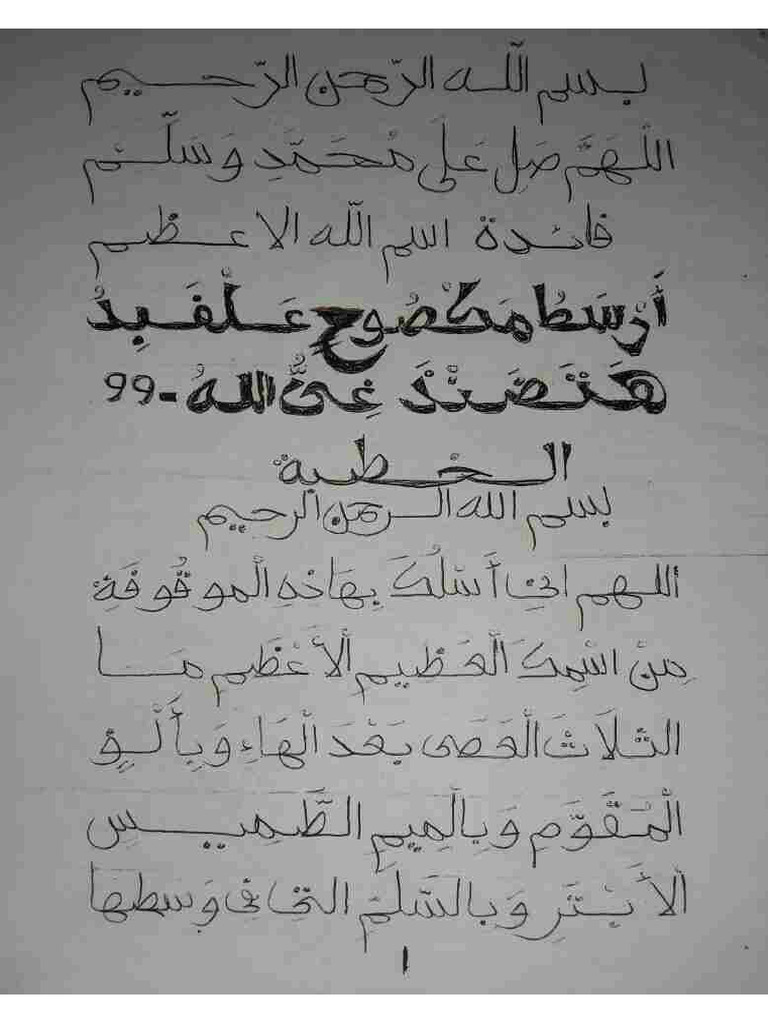 بسم اللّه الرّحمن الرّحيم
اللّهمَّ صَلِ عَلَى مُحَمَّدِ وَسَلّم
فائدة اسم اللّه الاعظم
أَرْسَطُ مَكْصُوحٍ عَلْفَيِدُ
هَتَصَنْدَ غِىُّ اللهُ-99
الخطبة
بسم الله الرحمن الرحيم
اللهم اني أَسْلُكَ بِهَاذِهِ الْموقُوفَةِ
مِنْ اسْمِكَ الْعَظِيمِ الْأَعْظَمِ مَا
الثلَاثَ الْعَصَى بَعْدَ الْهَاءِ وَبِأَلِفٍ
الْمُقَوَّمِ وَبِالْمِيمِ الطَّمِيسِ
الْأَبْتَرِ وَبِالسَّلَّمِ التي في وَسطها
١